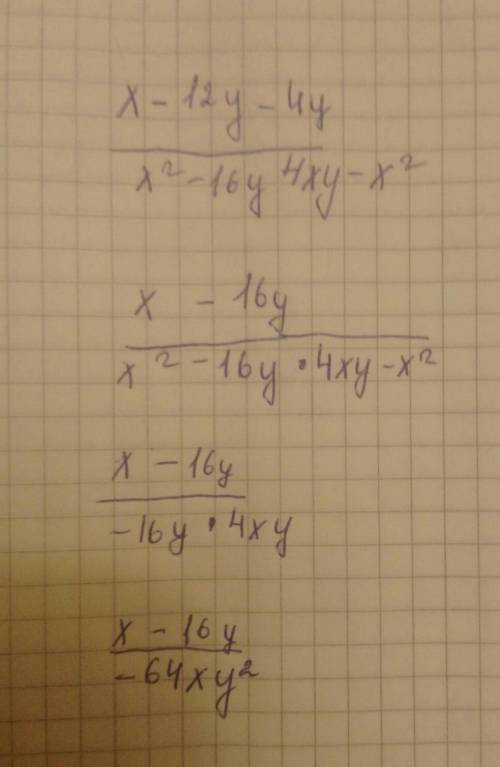 x - 12y - 4y
x² - 16y 4xy - x²
x - 16y
x² - 16y · 4xy - x²
x - 16y
- 16y · 4xy
x - 16y
- 64xy²